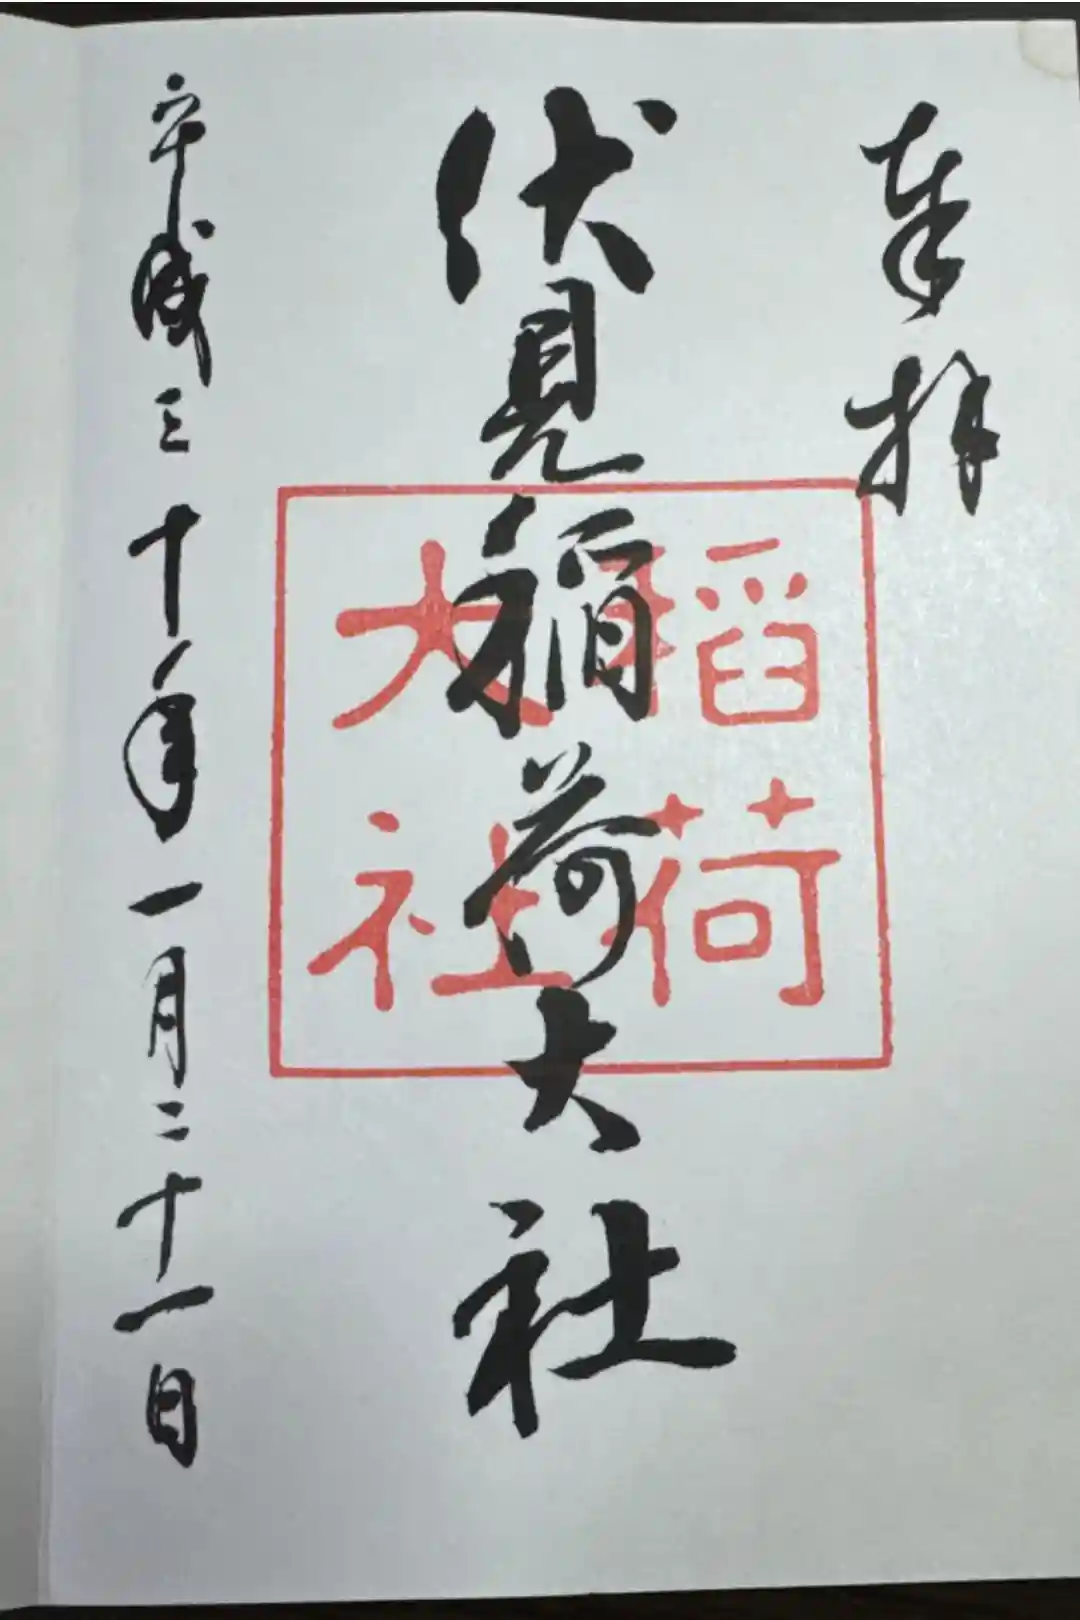 奉拝
伏見稲荷大社
稲荷
大社
平成三十年一月二十一日